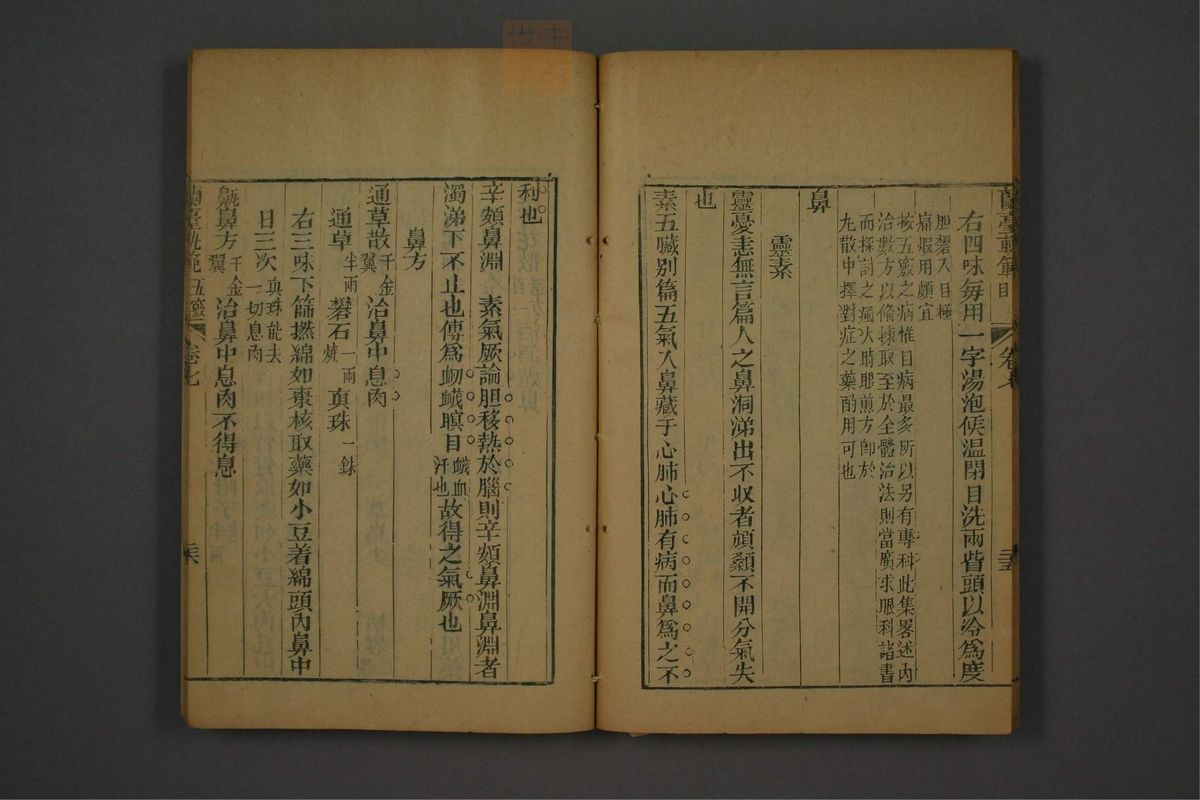 蘭臺軌範 目 卷七 三五
右四味每用一字湯泡候溫閉目洗兩眥頭以冷爲度
胆礬入目極
痛㕝用頗宜
按五竅之病惟目病最多所以另有專科此集畧述內
治數方以備採取至於全體治法則當廣求眼科諸書
而探討之瘋火時眼煎方卽於
九散中擇對症之藥酌用可也
鼻
靈素
靈憂恚無言篇人之鼻洞涕出不收者頏顙不開分氣失
也
素五臟別篇五氣入鼻藏于心肺心肺有病而鼻爲之不
利也
辛頞鼻淵 素氣厥論胆移熱於腦則辛頞鼻淵鼻淵者
濁涕下不止也傳爲衂衊瞑目衊血汗也故得之氣厥也
鼻方
通草散千金翼治鼻中息肉
通草半兩 礬石一兩燒 眞珠一銖
右三味下篩撚綿如棗核取藥如小豆着綿頭內鼻中
日三次眞珠能去一切息肉
齆鼻方千金翼治鼻中息肉不得息
蘭臺軌範 五竅 卷七 三六